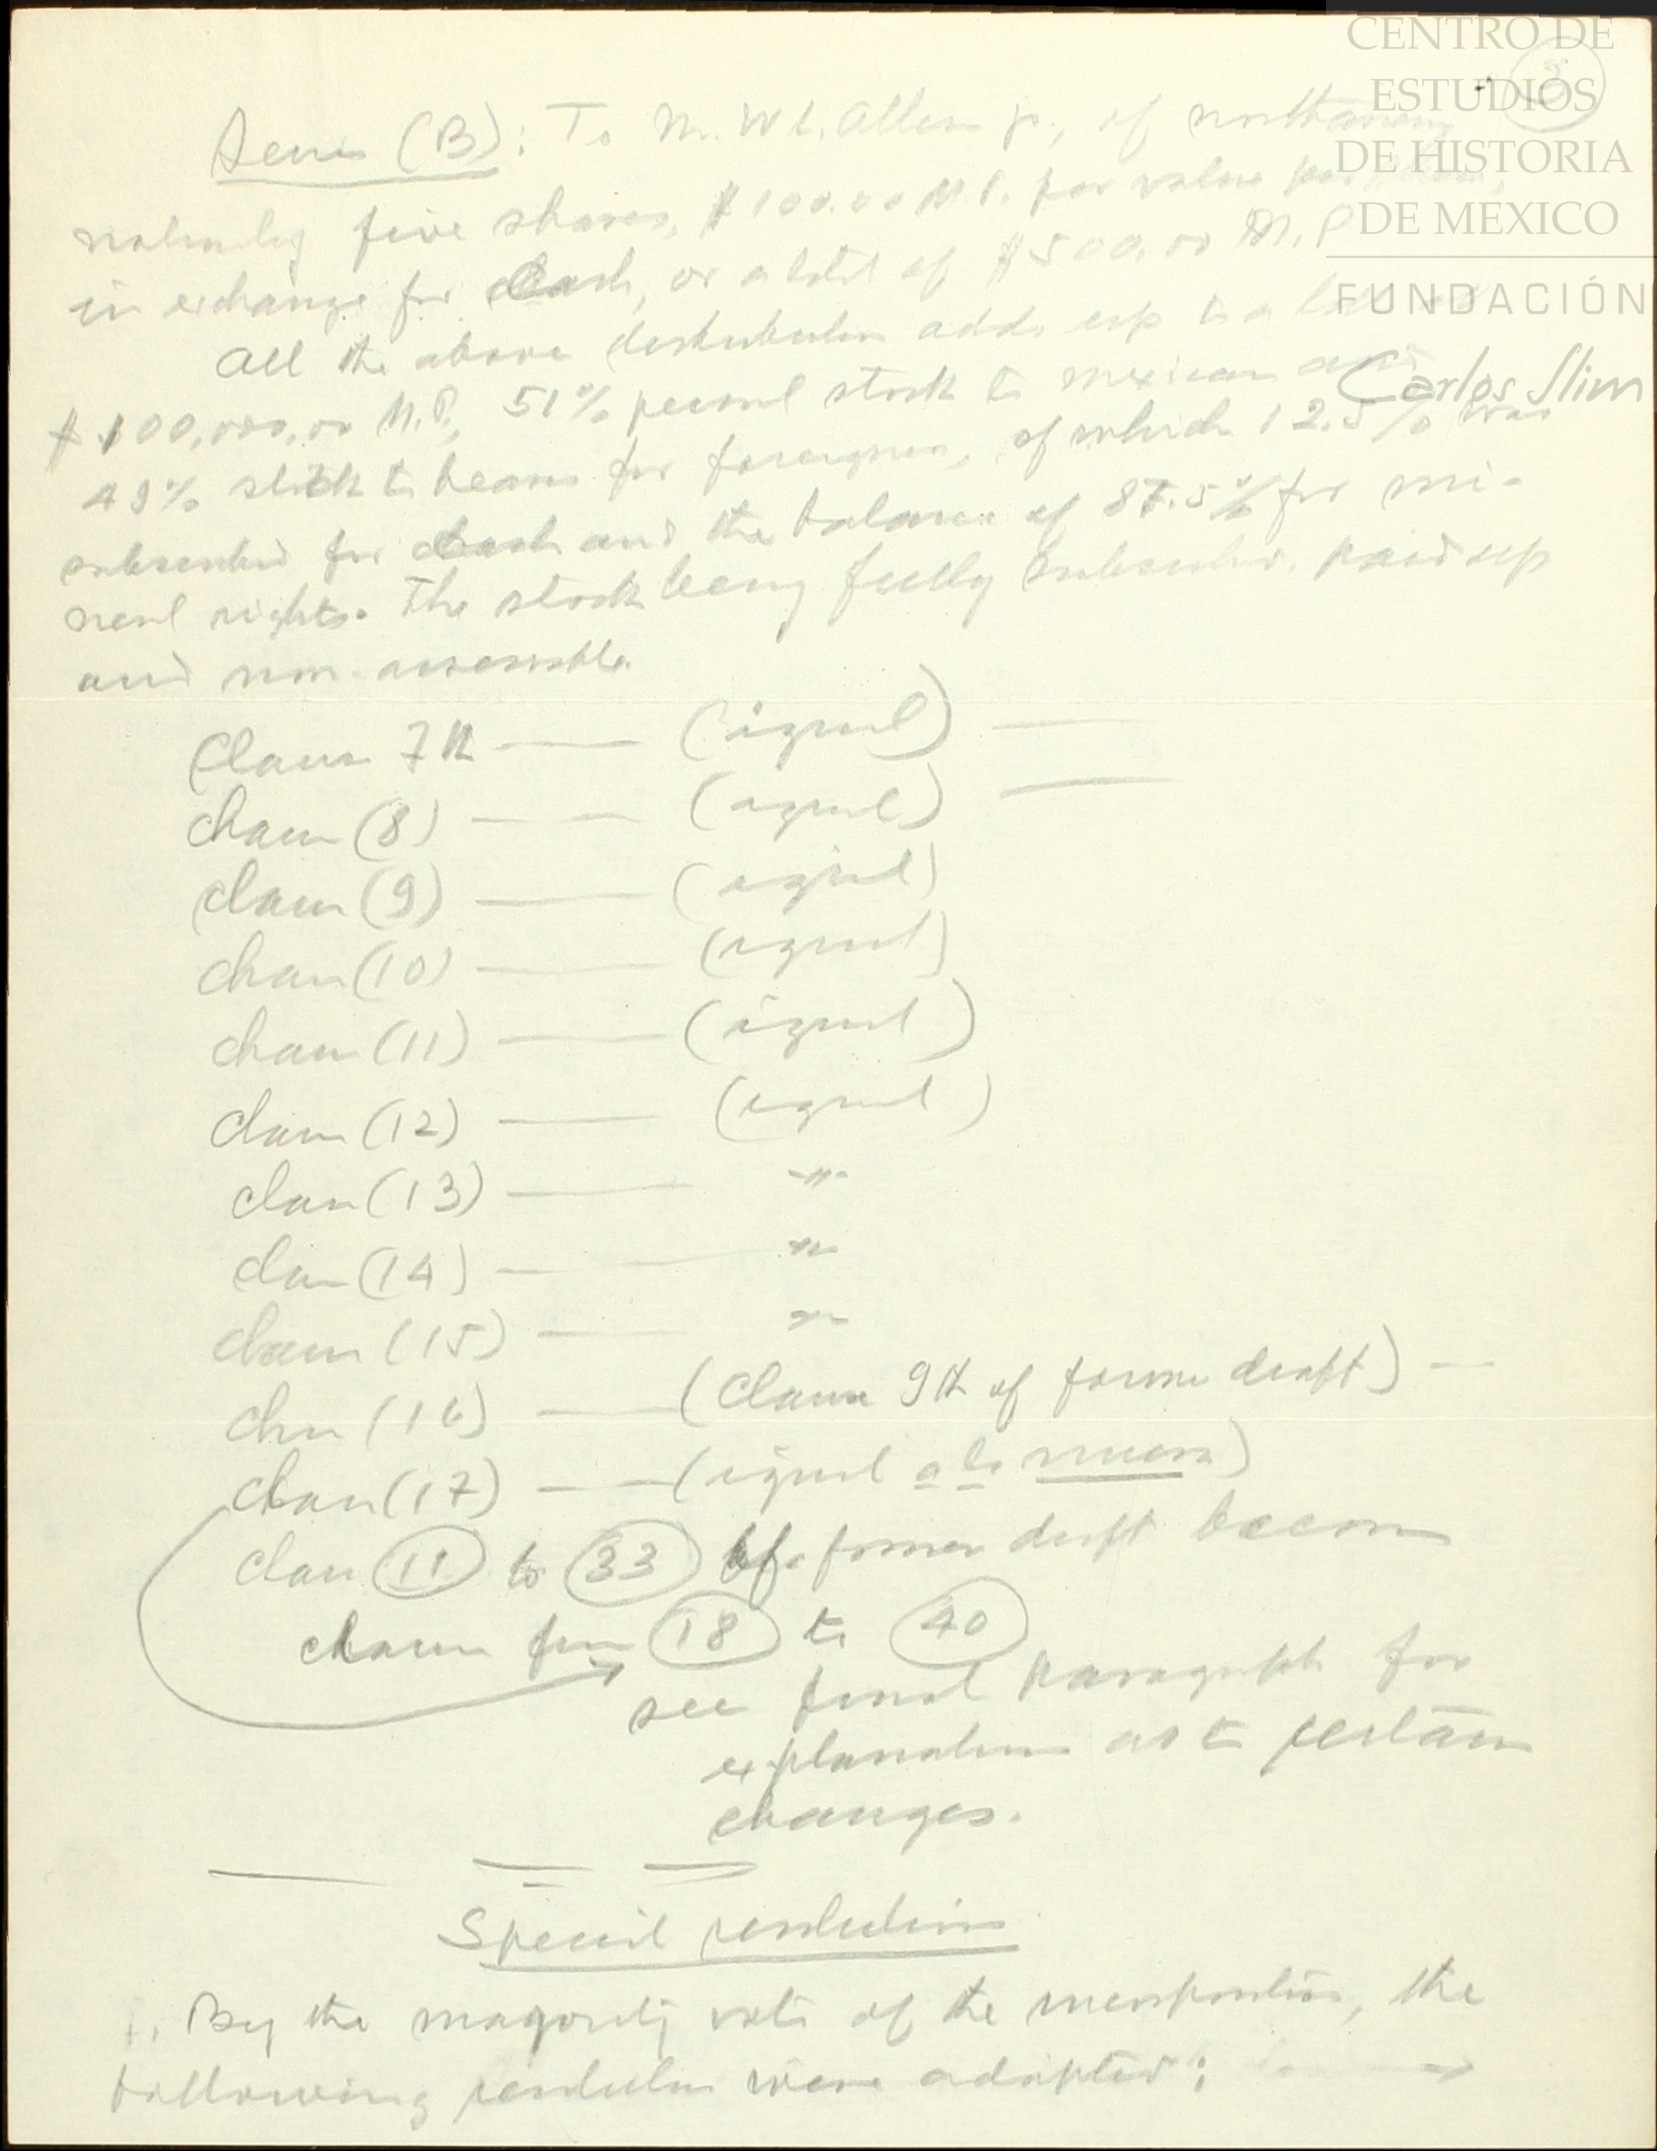 CENTRO DE
ESTUDIOS
DE HISTORIA
DE MÉXICO
FUNDACIÓN
Carlos Slim
Series (B): To M. W. L. Allen Jr., of
five shares, $100.00 M.P. par value
in exchange for Cash, or a total of $500.00 M.P.
All the above distribution adds up to a
$100,000.00 M.P., 51% stock to mexican and
49% stock to bearer for foreigners, of which 12.5% was
subscribed for cash and the balance of 87.5% for mi-
neral rights. The stock being fully subscribed, paid up
and non-assessable.
Clause 7th (igual)
Clause (8) (igual)
Clause (9) (igual)
Clause (10) (igual)
Clause (11) (igual)
Clause (12) (igual)
Clause (13) "
Clause (14) "
Clause (15) "
Clause (16) (Clause 9th of former draft)
Clause (17) (igual a la nueva)
Clause 11 to 33 of former draft become
clause from 18 to 40
see final paragraph for
explanation as to certain
changes.
Special resolutions
1. By the majority vote of the, the
following resolution were adopted: